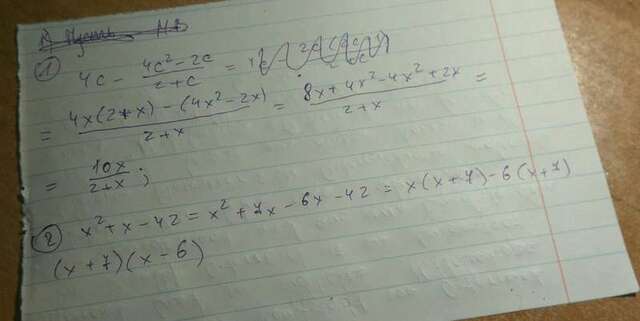 1) 4c - (4c² - 2c)/(2+c) =
= (4x(2+x) - (4x² - 2x))/(2+x) = (8x + 4x² - 4x² + 2x)/(2+x) =
= 10x/(2+x);
2) x² + x - 42 = x² + 7x - 6x - 42 = x(x+7) - 6(x+7)
(x+7)(x-6)